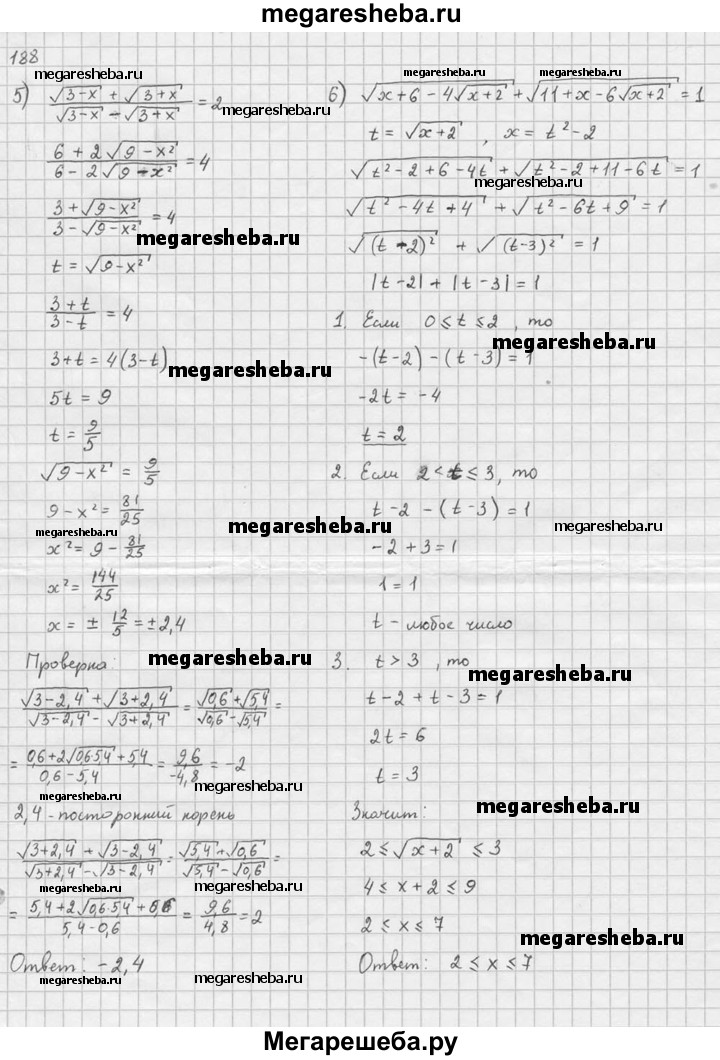 megaresheba.ru
188
megaresheba.ru
5) (√(3-x) + √(3+x))/(√(3-x) - √(3+x)) = 2
(6 + 2√(9-x²))/(6 - 2√(9-x²)) = 4
(3 + √(9-x²))/(3 - √(9-x²)) = 4
megaresheba.ru
t = √(9-x²)
(3+t)/(3-t) = 4
3+t = 4(3-t)
megaresheba.ru
5t = 9
t = 9/5
√(9-x²) = 9/5
9 - x² = 81/25
megaresheba.ru
megaresheba.ru
x² = 9 - 81/25
x² = 144/25
x = ± 12/5 = ±2,4
Проверка:
megaresheba.ru
(√(3-2,4) + √(3+2,4))/(√(3-2,4) - √(3+2,4)) = (√0,6 + √5,4)/(√0,6 - √5,4) =
= (0,6+2√(0,6·5,4)+5,4)/(0,6-5,4) = 9,6/-4,8 = -2
megaresheba.ru
2,4 - посторонний корень
megaresheba.ru
(√(3+2,4) + √(3-2,4))/(√(3+2,4) - √(3-2,4)) = (√5,4 + √0,6)/(√5,4 - √0,6) =
megaresheba.ru
megaresheba.ru
= (5,4+2√(0,6·5,4)+0,6)/(5,4-0,6) = 9,6/4,8 = 2
Ответ: -2,4
megaresheba.ru
megaresheba.ru
megaresheba.ru
6) √(x+6-4√(x+2)) + √(11+x-6√(x+2)) = 1
t = √(x+2) , x = t²-2
√(t²-2+6-4t) + √(t²-2+11-6t) = 1
megaresheba.ru
√(t²-4t+4) + √(t²-6t+9) = 1
√((t-2)²) + √((t-3)²) = 1
|t-2| + |t-3| = 1
1. Если 0 ≤ t ≤ 2 , то
megaresheba.ru
-(t-2) - (t-3) = 1
-2t = -4
t = 2
2. Если 2 < t ≤ 3, то
t-2 - (t-3) = 1
megaresheba.ru
-2+3 = 1
1 = 1
t - любое число
3. t > 3 , то
megaresheba.ru
t-2 + t-3 = 1
2t = 6
t = 3
Значит:
megaresheba.ru
2 ≤ √(x+2) ≤ 3
4 ≤ x+2 ≤ 9
2 ≤ x ≤ 7
megaresheba.ru
Ответ: 2 ≤ x ≤ 7
Мегарешеба.ру